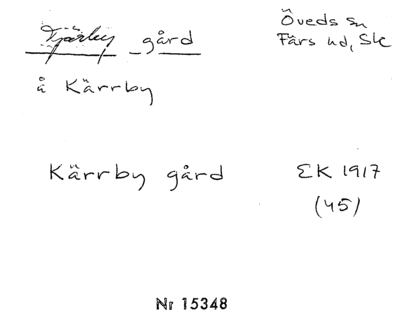 gård
Öveds sn
Färs hd, Sk
å Kärrby
Kärrby gård
EK 1917
(45)
Nr 15348